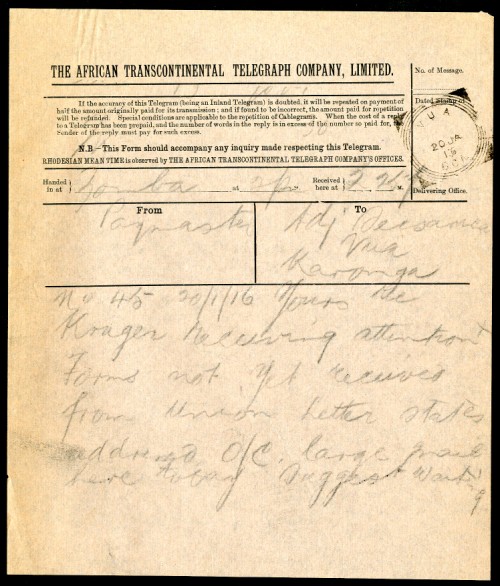 THE AFRICAN TRANSCONTINENTAL TELEGRAPH COMPANY, LIMITED.
No. of Message.
If the accuracy of this Telegram (being an Inland Telegram) is doubted, it will be repeated on payment of
half the amount originally paid for its transmission; and if found to be incorrect, the amount paid for repetition
will be refunded. Special conditions are applicable to the repetition of Cablegrams. When the cost of a reply
to a Telegram has been prepaid, and the number of words in the reply is in excess of the number so paid for, the
Sender of the reply must pay for such excess.
Dated Stamp of
UA
20 JA
16
N.B.—This Form should accompany any inquiry made respecting this Telegram.
RHODESIAN MEAN TIME is observed by THE AFRICAN TRANSCONTINENTAL TELEGRAPH COMPANY'S OFFICES.
Handed in at Zomba at 2p M. Received here at M.
Delivering Office.
From
To
Paymaster
Adj
Via
Karonga
No 45 20/1/16 Yours Re
Kruger receiving attention
Forms not yet received
from Union letter states
addressed O/C. large mail
here today Suggest Waiting